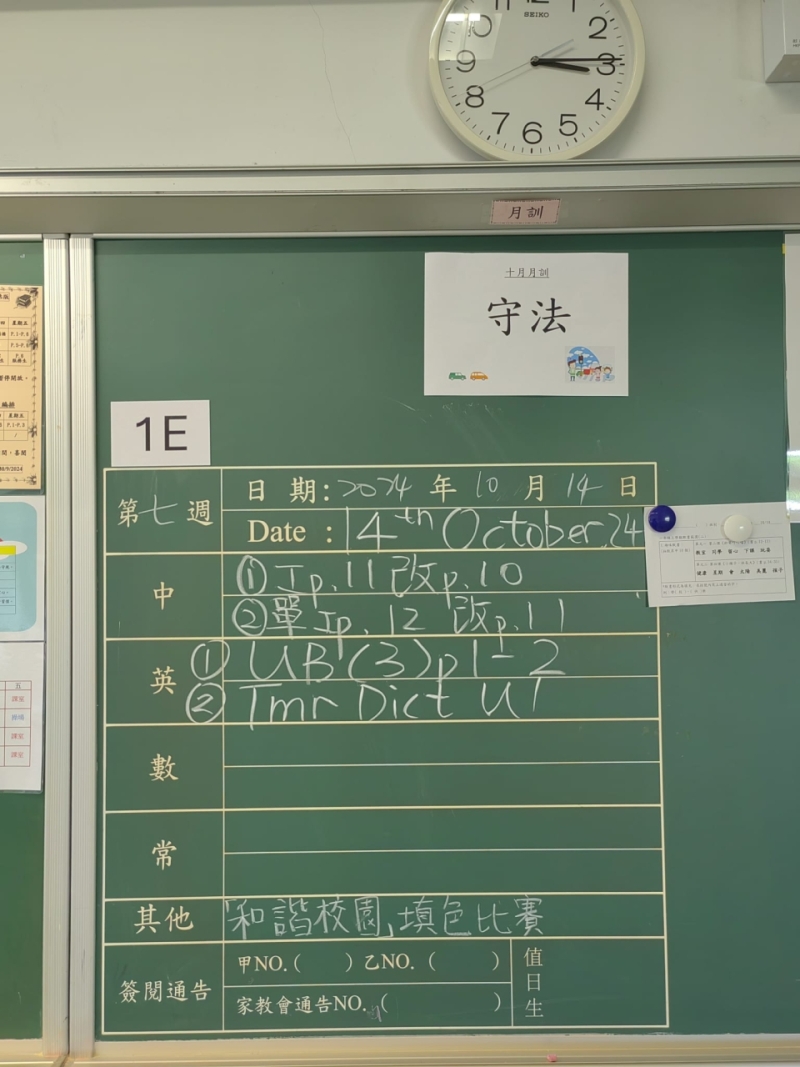 SEIKO
12 1 2 3 4 5 6 7 8 9 10
月訓
十月月訓
守法
1E
第七週
日 期：2024 年 10 月 14 日
Date : 14th October, 24
中
① J p.11 改p.10
② 單J p.12 改p.11
英
① UB (3) p1-2
② Tmr Dict U1
數
常
其他
「和諧校園」填色比賽
簽閱通告
甲NO.( ) 乙NO. ( )
家教會通告NO. ( )
值日生